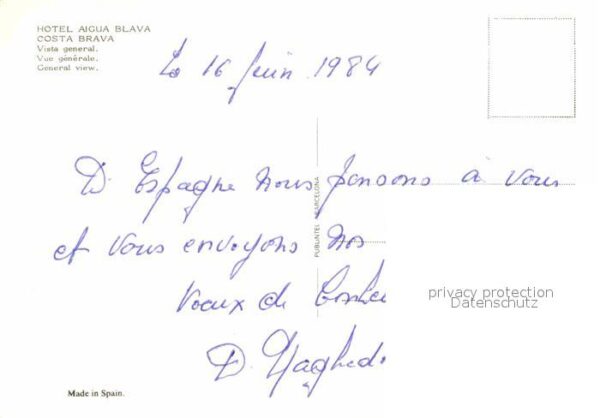 HOTEL AIGUA BLAVA
COSTA BRAVA
Vista general.
Vue générale.
General view.
Le 16 Juin 1984
D'Espagne nous pensons à vous
et vous envoyons nos
voeux de
D.
PUBLINTEL - BARCELONA
privacy protection
Datenschutz
Made in Spain.